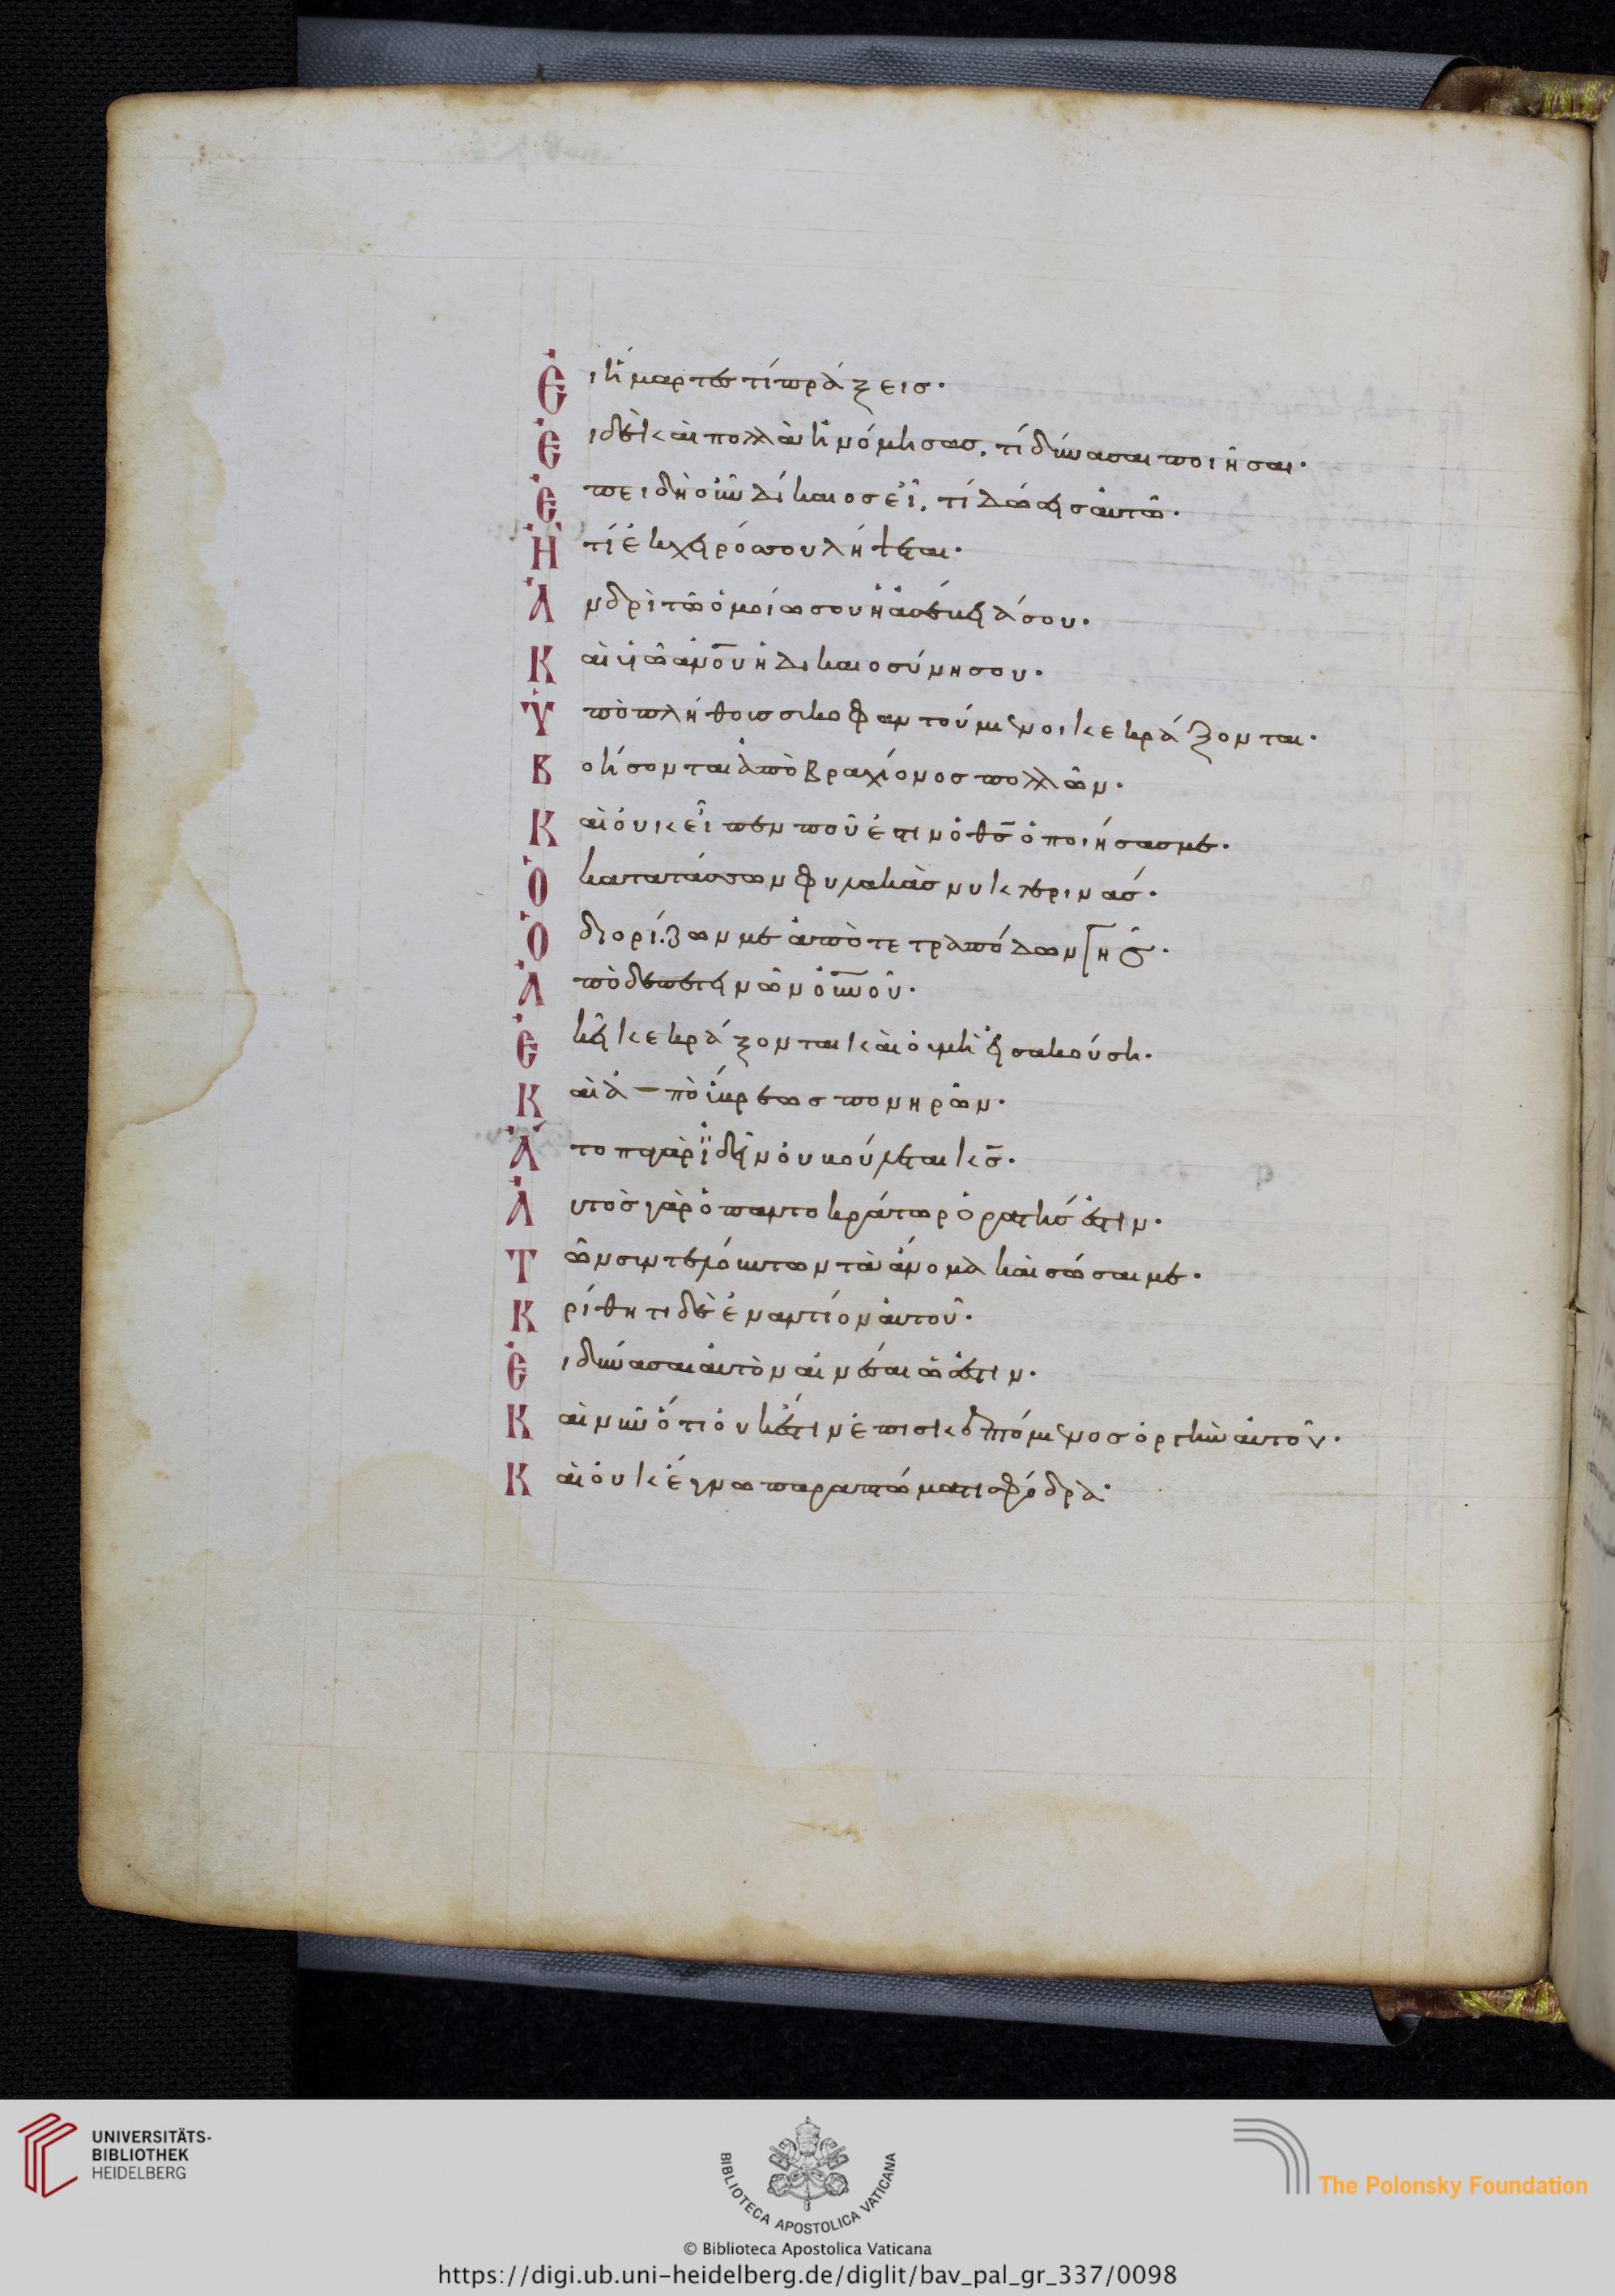 Ἐι ἥμαρτες τί πράξεις·
Ἐι δὲ καὶ πολλὰ ἠνόμησας, τί δύνασαι ποιῆσαι·
Ἐπειδὴ οὖν δίκαιος εἶ, τί δώσεις αὐτῶ·
Ἢ τί ἐκ χειρός σου λήψεται·
Ἀνδρὶ τῶ ὁμοίω σου ἡ ἀσέβειά σου·
Καὶ υἱῶ ἀνου ἡ δικαιοσύνη σου·
Ὑπὸ πλήθους συκοφαντούμενοι κεκράξονται·
Βοήσονται ἀπὸ βραχίονος πολλῶν·
Καὶ οὐκ εἶπεν ποῦ ἐστιν ὁ θς ὁ ποιήσας με·
Ὁ κατατάσσων φυλακὰς νυκτερινάς·
Ὁ διορίζων με ἀπὸ τετραπόδων γῆς·
Ἀπὸ δὲ πετεινῶν οὐνοῦ·
Ἐκεῖ κεκράξονται καὶ οὐ μὴ εἰσακούση·
Καὶ ἀπὸ ὕβρεως πονηρῶν·
Ἄτοπα γὰρ ἰδεῖν οὐ βούλεται κς·
Αὐτὸς γὰρ ὁ παντοκράτωρ ὁρατής ἐστιν·
Τῶν συντελούντων τὰ ἄνομα καὶ σώσαι με·
Κρίθητι δὲ ἐναντίον αὐτοῦ·
Ἐι δύνασαι αὐτὸν αἰνέσαι ὡς ἔστιν·
Καὶ νῦν ὅτι οὐκ ἔστιν ἐπισκεπτόμενος ὀργὴν αὐτοῦ·
Καὶ οὐκ ἔγνω παραπτώματι σφόδρα·
UNIVERSITÄTS-
BIBLIOTHEK
HEIDELBERG
BIBLIOTECA APOSTOLICA VATICANA
The Polonsky Foundation
© Biblioteca Apostolica Vaticana
https://digi.ub.uni-heidelberg.de/diglit/bav_pal_gr_337/0098